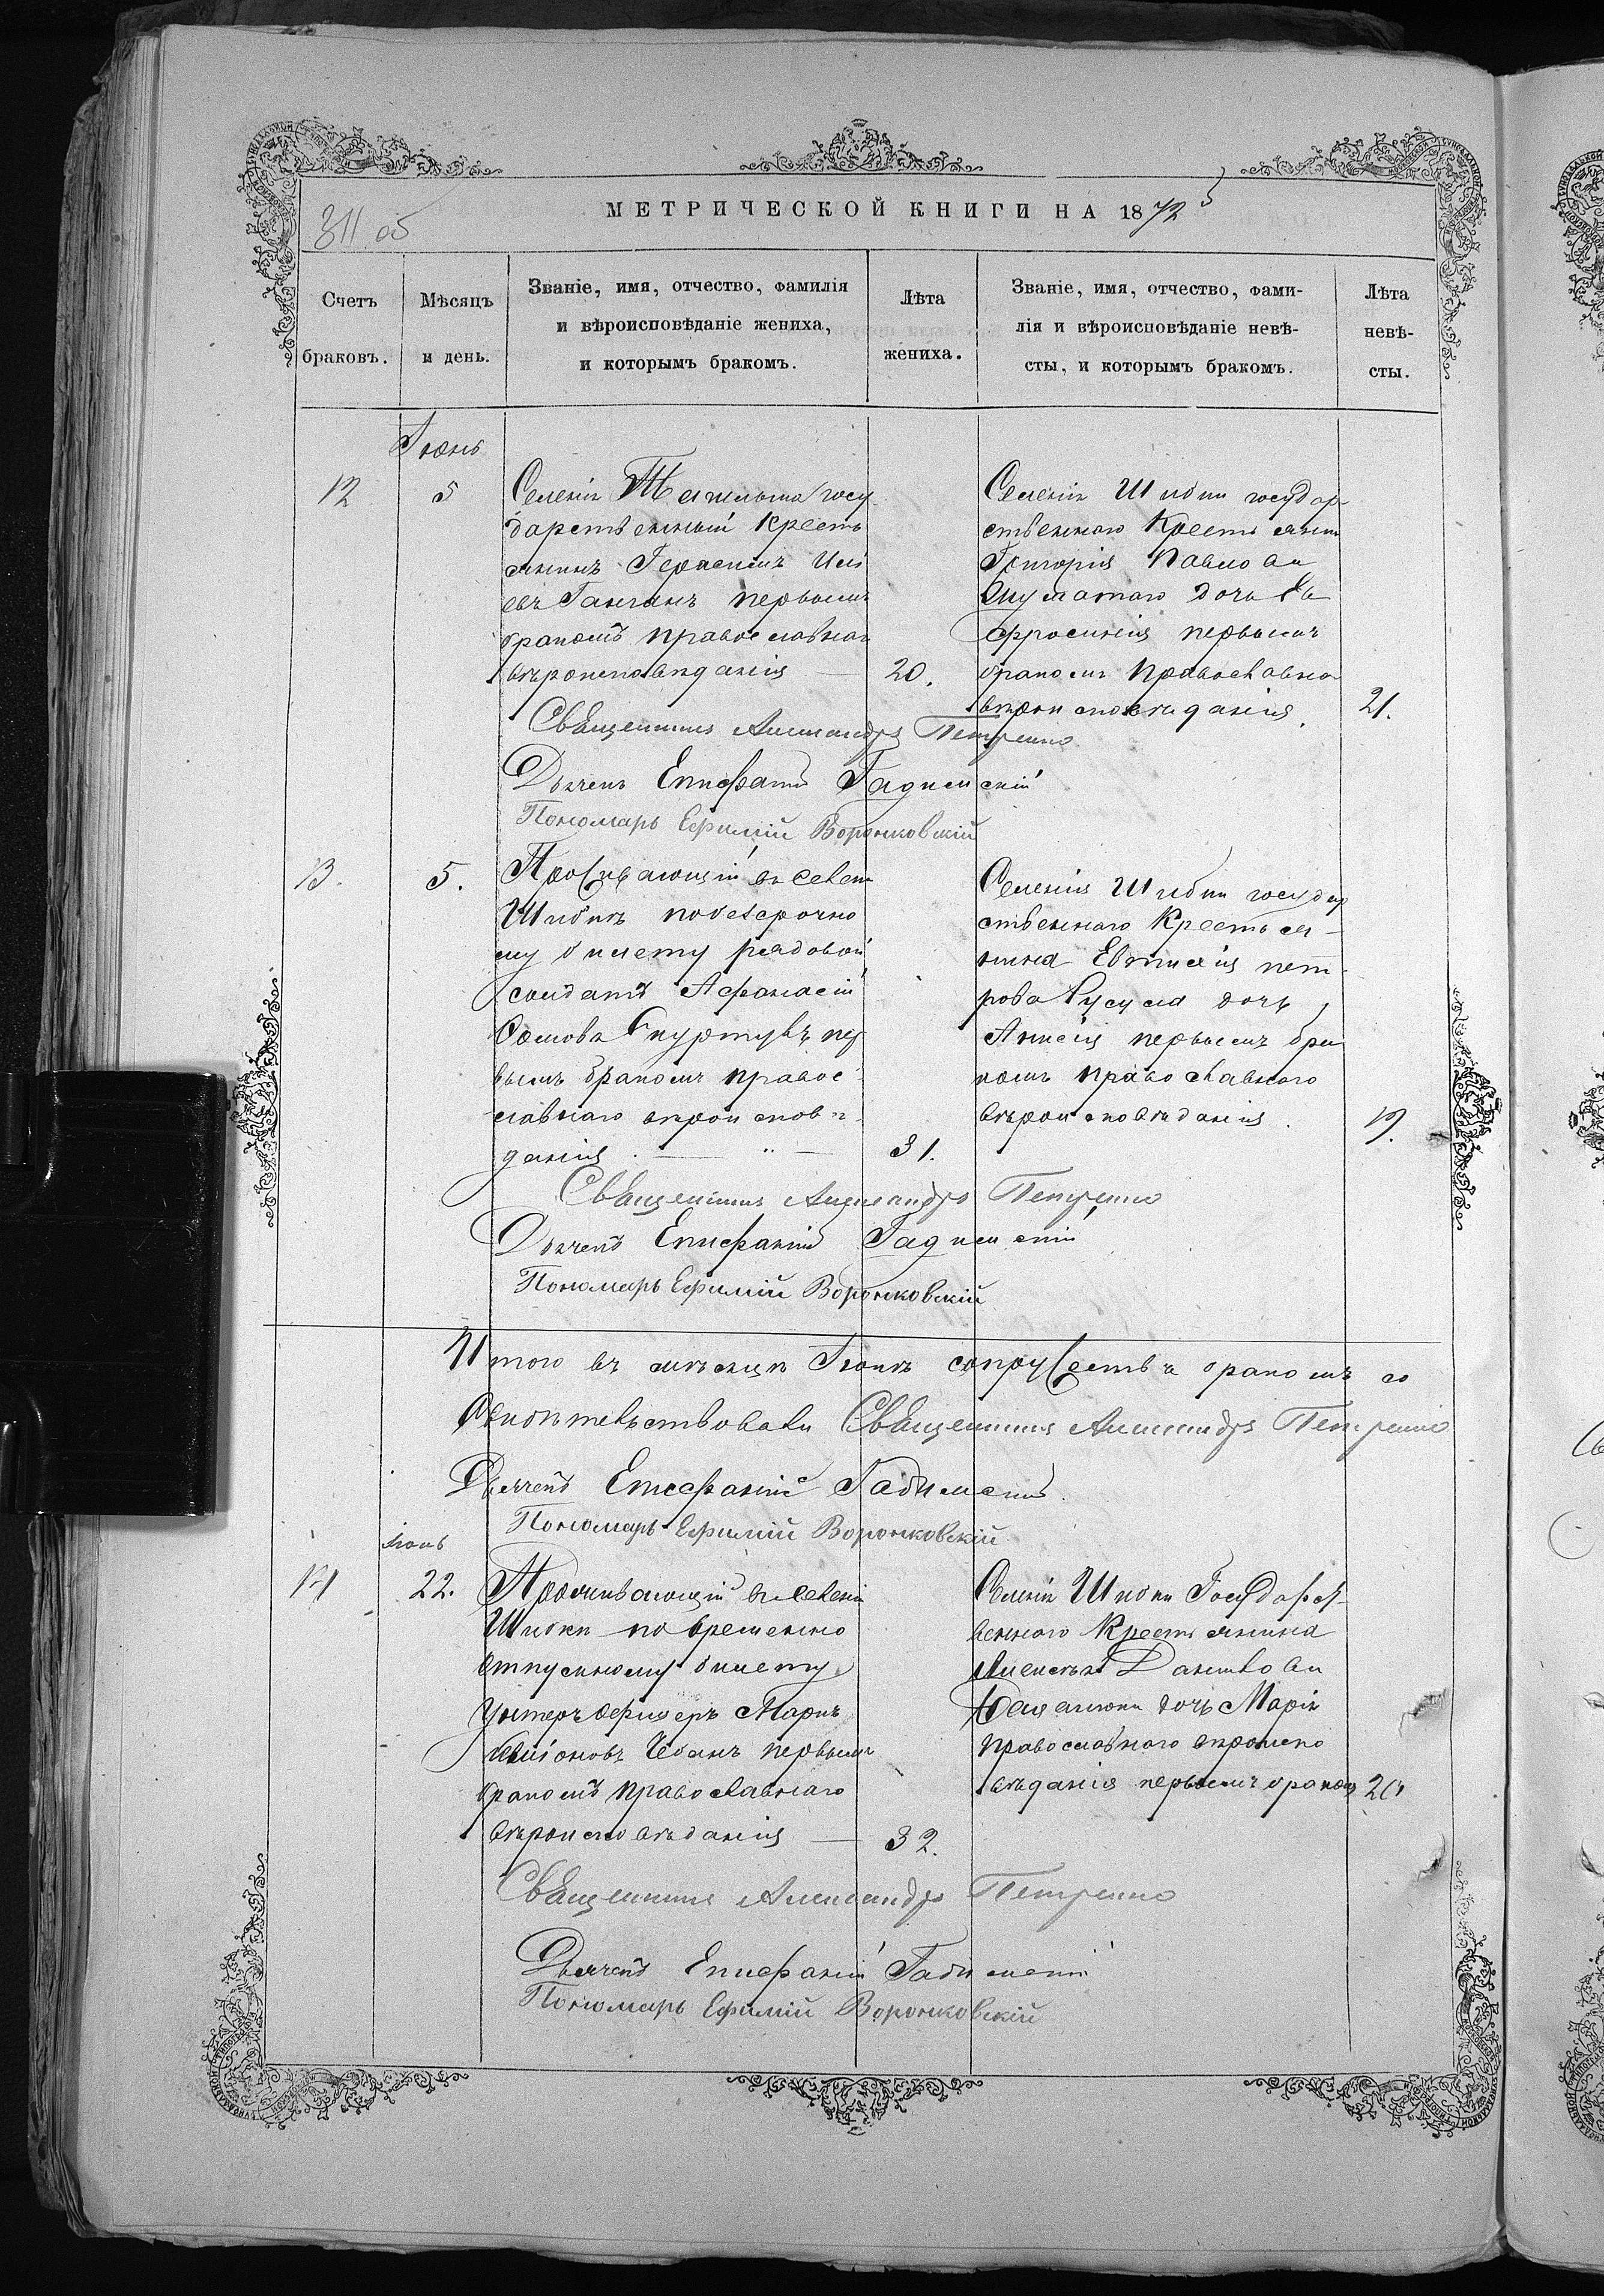 311 об
МЕТРИЧЕСКОЙ КНИГИ НА 1872
Счетъ браковъ.
Мѣсяцъ и день.
Званіе, имя, отчество, фамилія
и вѣроисповѣданіе жениха,
и которымъ бракомъ.
Лѣта жениха.
Званіе, имя, отчество, фами-
лія и вѣроисповѣданіе невѣ-
сты, и которымъ бракомъ.
Лѣта невѣ-
сты.
Іюнь
12
5
Селенія госу
дарственный кресть
янинъ Герасимъ
первымъ
бракомъ православнаго
вѣроисповѣданія
20.
Селенія Шибки государ-
ственнаго Крестьянина
Григорія Павлова
дочь Ев
фросинія первымъ
бракомъ Православнаго
вѣроисповѣданія.
21.
Священникъ Александръ Петренко
Дьячекъ Епифаній
Пономарь Ефимій Воронковскій
13.
5.
Проживающій въ селеніи
Шибкѣ по безсрочно
му билету рядовой
солдатъ Афанасій
пер
вымъ бракомъ правос
лавнаго вѣроисповѣ
данія
31.
Селенія Шибки государ
ственнаго Крестья-
нина Евтимія Пет-
рова дочь
первымъ бра
комъ православнаго
вѣроисповѣданія.
19.
Священникъ Александръ Петренко
Дьячекъ Епифаній
Пономарь Ефимій Воронковскій
Итого въ мѣсяцѣ Іюнѣ бракомъ
свидѣтельствовали Священникъ Александръ Петренко
Дьячекъ Епифаній
Пономарь Ефимій Воронковскій
14
22.
Проживающій въ селеніи
Шибки по временно
отпускному билету
Унтеръ офицеръ Маркъ
Чебанъ первымъ
бракомъ православнаго
вѣроисповѣданія
32.
Селенія Шибки Государст-
веннаго Крестьянина
Алексѣя Данилова
дочь Марія
православнаго вѣроиспо
вѣданія первымъ бракомъ
Священникъ Александръ Петренко
Дьячекъ Епифаній
Пономарь Ефимій Воронковскій